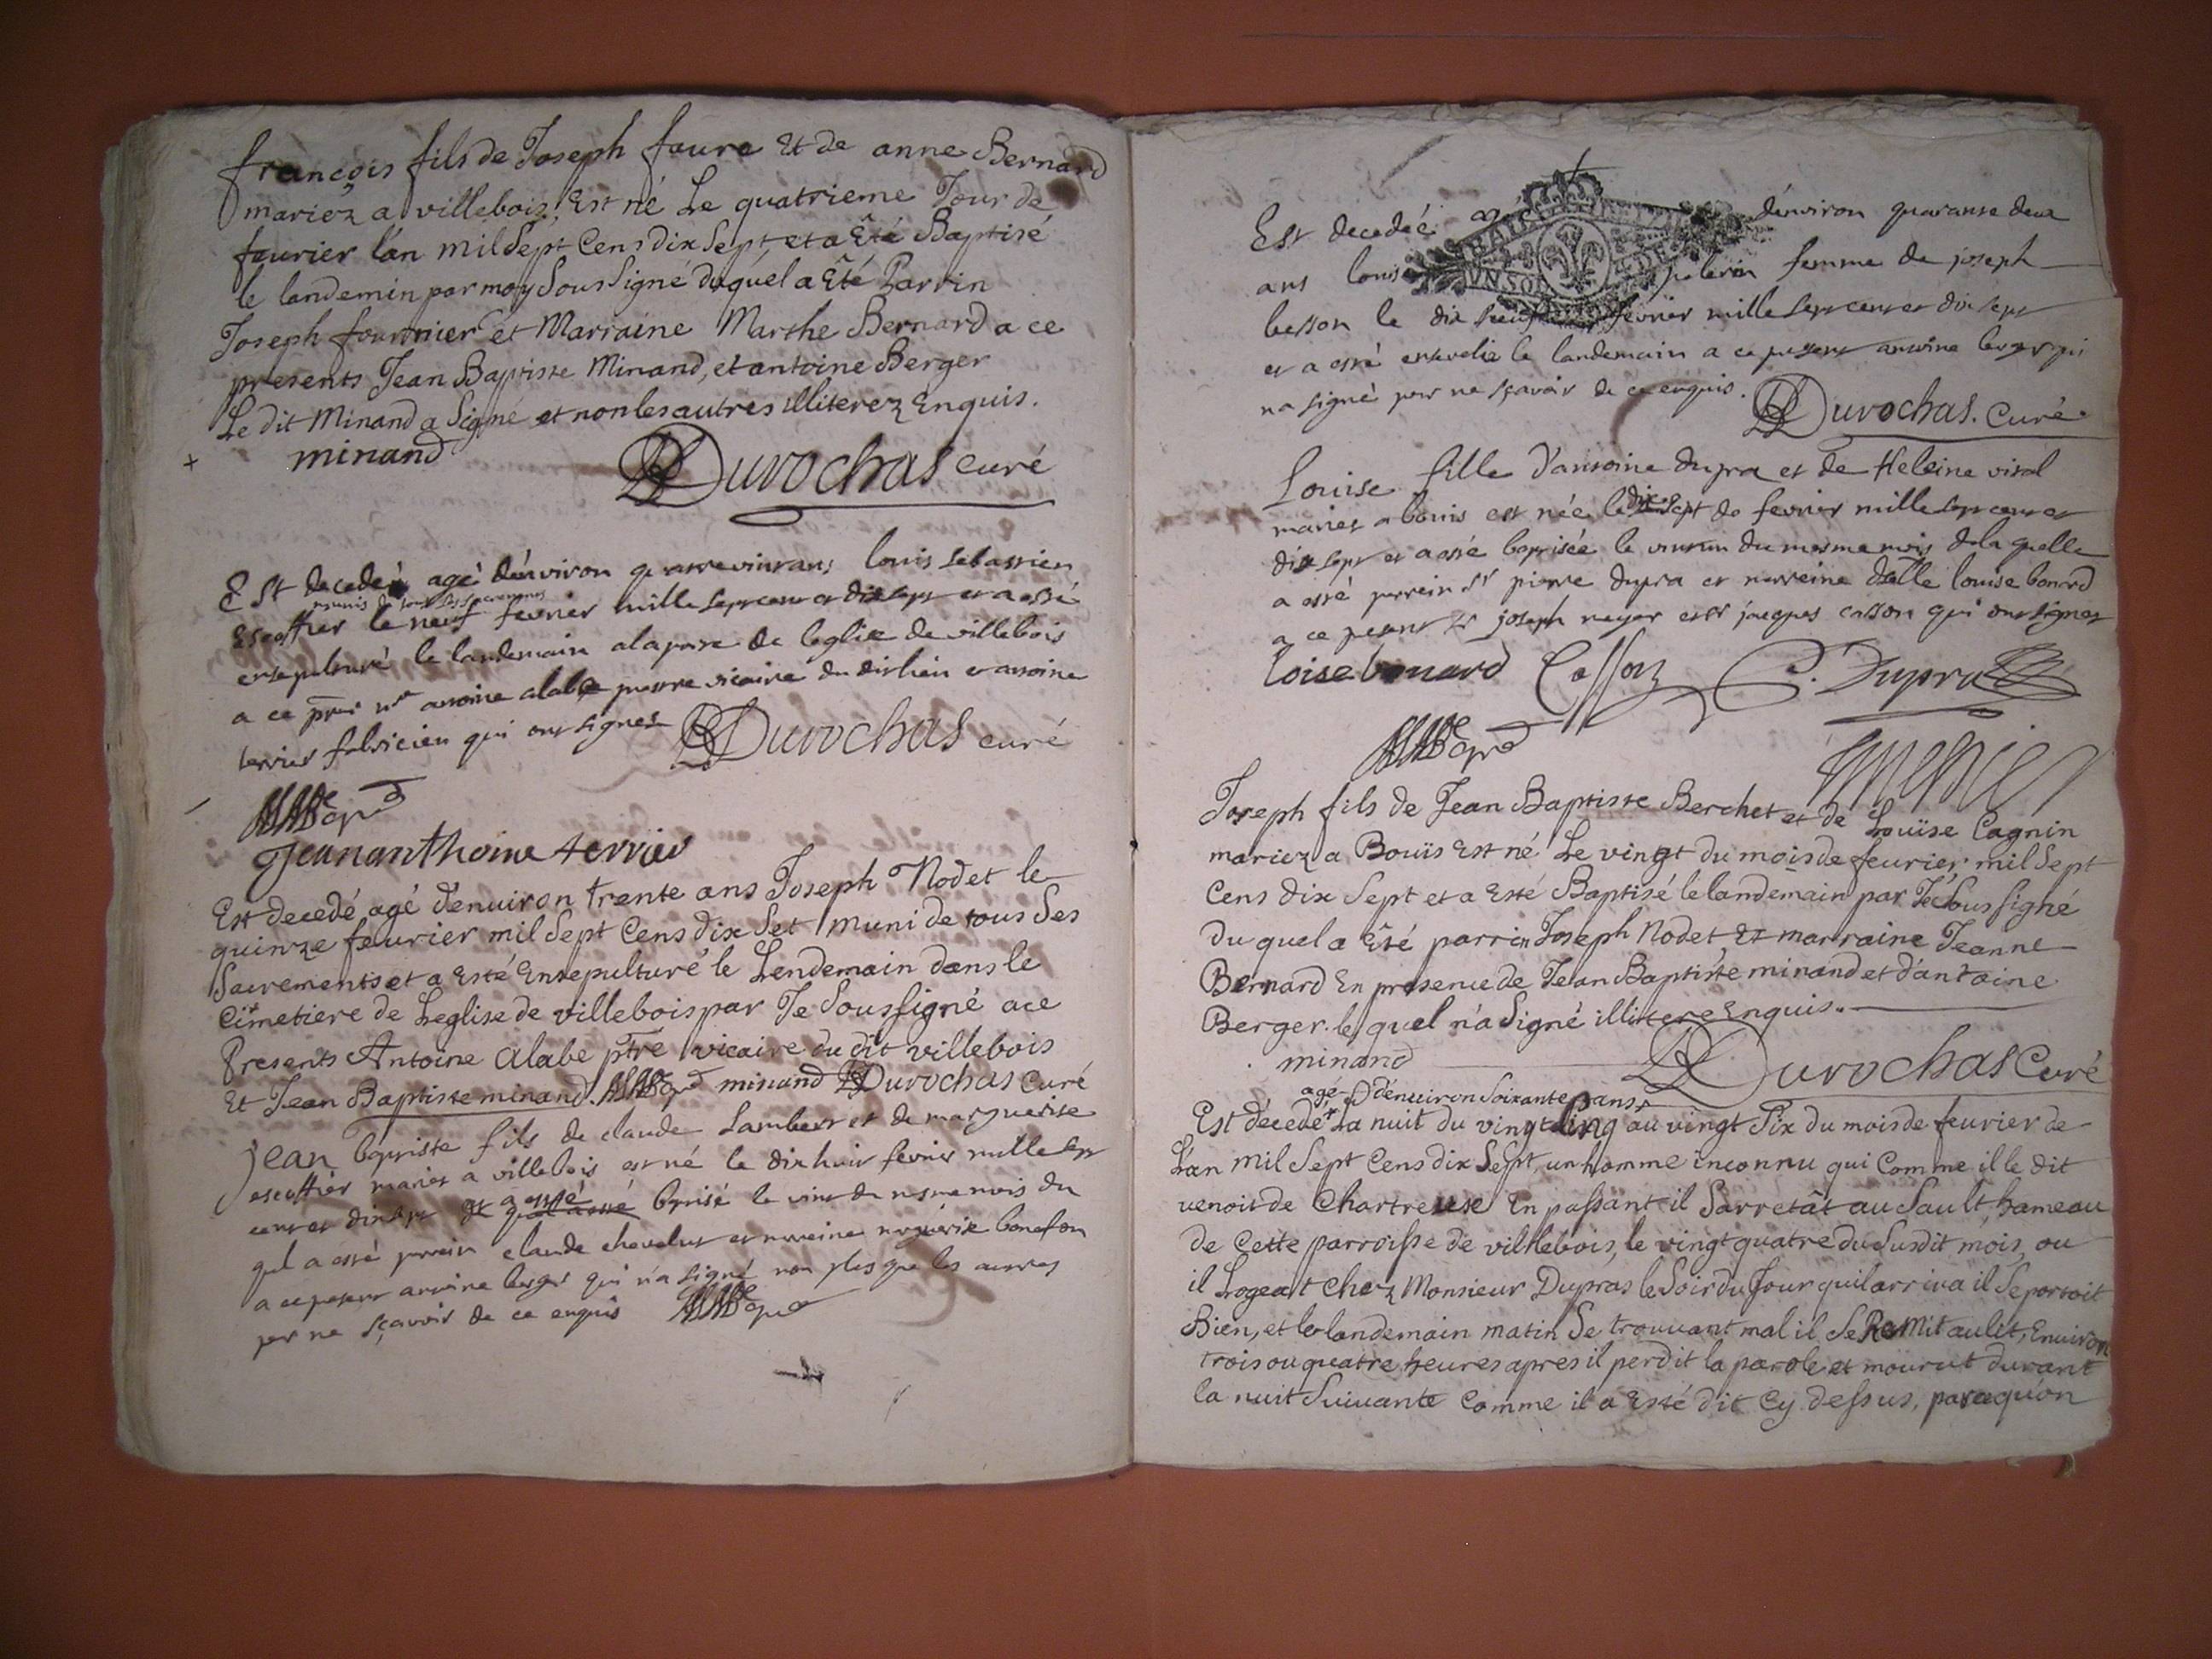 françois fils de Joseph faure Et de anne Bernard
mariez a villebois, Est né Le quatrieme Jour de
feurier l'an mil Sept Cens dix Sept et a Eté Baptisé
le landemin par moy Sous Signé duquel a Eté Parrin
Joseph fournier et Marraine Marthe Bernard a ce
presents Jean Baptiste Minand, et antoine Berger
Le dit Minand a Signé et non les autres illiterez Enquis.
minand
Durochas curé
Est decedeé agé d'environ quatrevint ans louis sebastien
munis de tous ses sacremens
Escoffier le neuf fevrier mille sept cent et dix sept et a esté
ensepulturé le landemain a la porte de leglise de villebois
a ce pñs mr antoine alabe prestre vicaire du dit lieu et antoine
terrier fabricien qui ont signes
Durochas curé
Jean anthoine terrier
Est decedé agé d'enuiron trente ans Joseph Nodet le
quinze feurier mil Sept Cens dix Set muni de tous Ses
Sacrements et a Esté Ensepulturé le Lendemain dans le
Cimetiere de Leglise de villebois par Je Soussigné a ce
Presents Antoine Alabe ptre vicaire du dit villebois
Et Jean Baptiste minand. minand Durochas Curé
Jean baptiste fils de claude Lambert et de marguerite
escoffier mariés a villebois est né le dix huit fevrier mille sept
cent et dix sept et a esté baptisé le vint du mesme mois du
quel a esté parrein claude chevelut et marreine marguerite bonefon
a ce present antoine berger qui n'a signé non plus que les autres
pour ne sçavoir de ce enquis
Est decedeé agée d'environ quarante deux
ans louise pelerin femme de joseph
besson le dix fevrier mille sept cent et dix sept
et a esté ensevelie le landemain a ce present antoine berger qui
na signé pour ne sçavoir de ce enquis.
Durochas. Curé
Louise fille d'antoine dupra et de Heleine vital
mariés a bouis est née le dix sept de fevrier mille sept cent et
dix sept et a esté baptisée le vint un du mesme mois de la quelle
a esté parrein sr pierre dupra et marreine dalle louise bonard
a ce present sr joseph et sr jacques casson qui ont signes
loise bonard Casson P. Dupra
Joseph fils de Jean Baptiste Berchet et de Louïse Cagnin
mariez a Bouïs Est né Le vingt du mois de feurier mil Sept
Cens dix Sept et a Esté Baptisé le landemain par Je Sous signé
du quel a Eté parrin Joseph Nodet, Et marraine Jeanne
Bernard En presence de Jean Baptiste minand et d'antoine
Berger. le quel n'a Signé illitere Enquis.
minand
Durochas Curé
agé d'enuiron Soixante ans
Est décedé La nuit du vingt cinq au vingt Six du mois de feurier de
L'an mil Sept Cens dix Sept, un homme inconnu qui Comme il le dit
uenoit de Chartreuse En passant il S'arretât au Sault hameau
de Cette parroisse de villebois, le vingt quatre du Susdit mois, ou
il Logeat Chez Monsieur Dupras le Soir du Jour quil arriva il Se portoit
Bien, et le landemain matin Se trouvant mal il Se Remit au lit, Enuiron
trois ou quatre heures apres il perdit la parole et mourut durant
la nuit Suiuante Comme il a Esté dit Cy dessus, parcequ'on